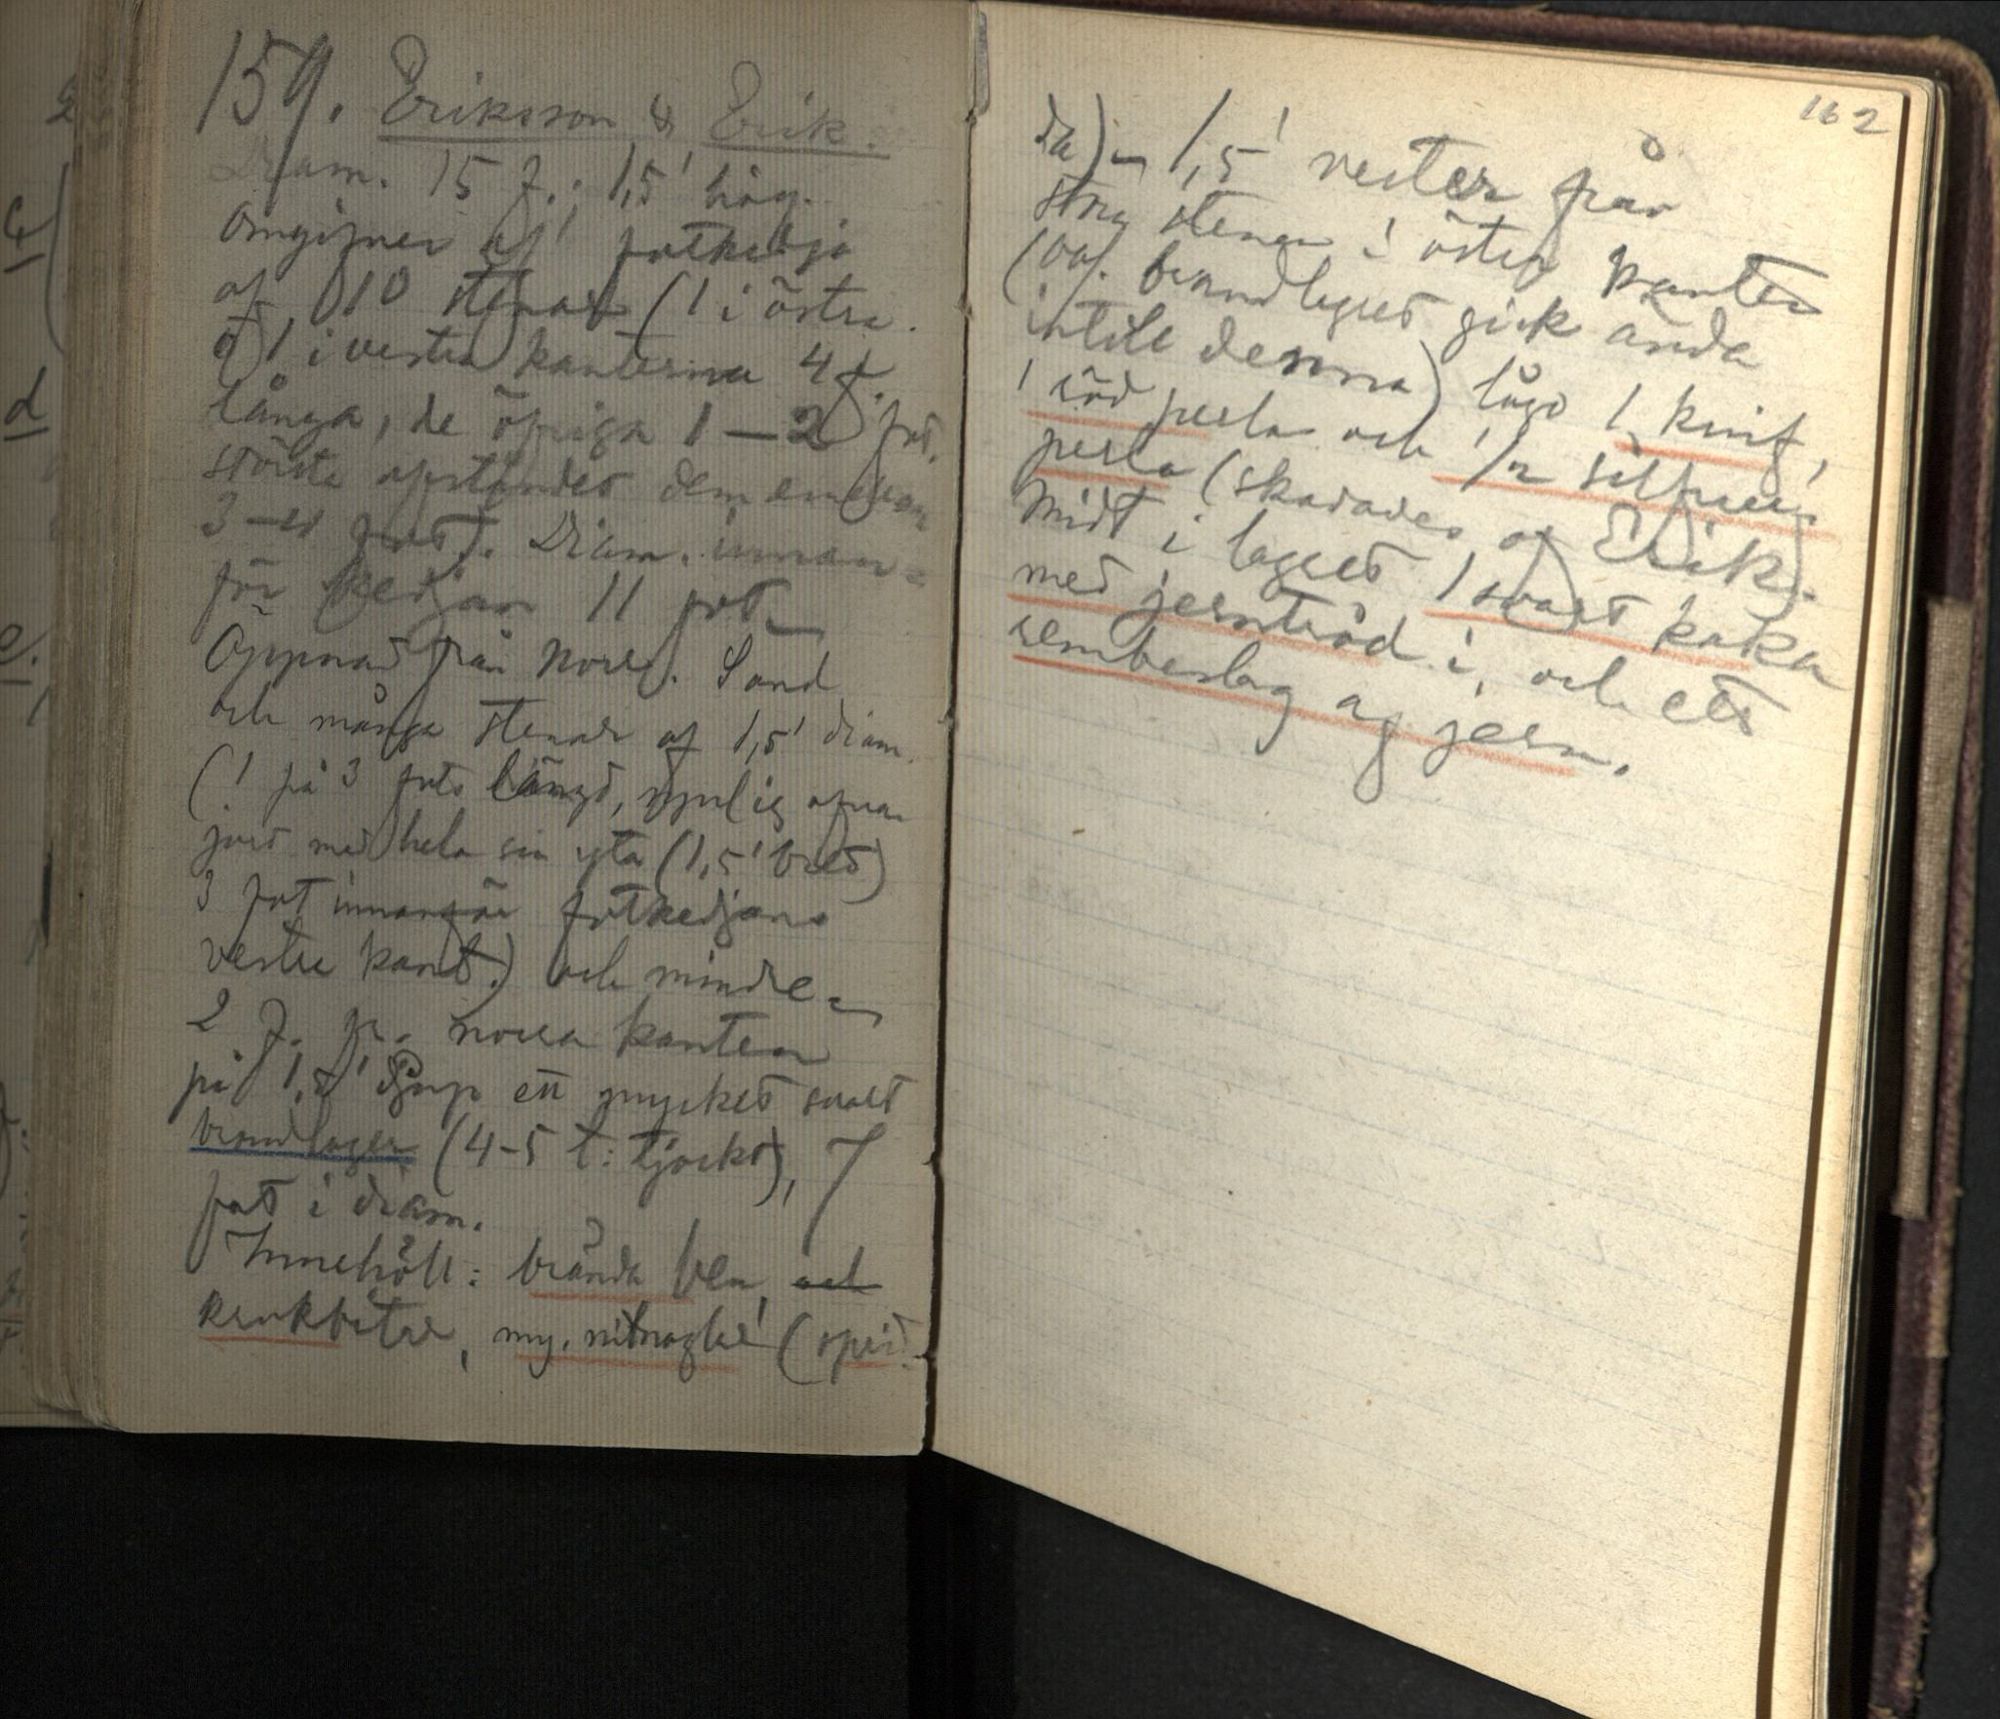 159. Eriksson & Erik.
Diam. 15 f.; 1,5' hög.
Omgifves af fotkedja
af 10 stenar (1 i östra
o 1 i vestra kanterna 4 f.
långa, de öfriga 1–2 fot,
största afståndet dem emellan
3–4 fot). Diam. innan-
för kedjan 11 fot
Öppnad från norr. Sand
och många stenar af 1,5' diam.
(1 på 3 fots längd, synlig ofvan
jord med hela sin yta (1,5' bred)
3 fot innanför fotkedjans
vestra kant.) och mindre
2 f. fr. norra kanten
på 1,5' djup ett mycket svart
brandlager (4-5 t. tjockt), 7
fot i diam.
Innehöll: brända ben, och
krukbitar, my. nitnaglar (sprid
162
da) 1,5' vester från
stora stenen i östra kanten
(obs. brandlagret gick ända
intill denna) lågo 1 knif,
1 röd perla och 1/2 silfver-
perla (skadades af Erik).
Midt i lagret 1 svart kaka
med jerntråd i, och ett
rembeslag af jern.